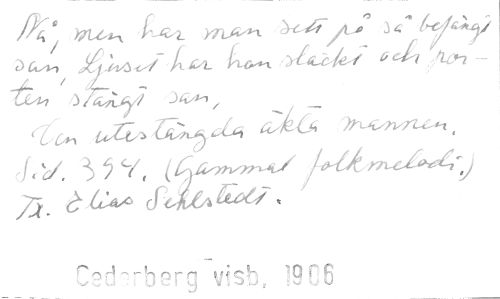 Nå, men har man sett på så befängt
san, Ljuset har han släckt och por-
ten stängt san,
Den utestängda äkta mannen.
Sid. 394. (Gammal folkmelodi.)
Tx. Elias Sehlstedt.
Cederberg visb, 1906